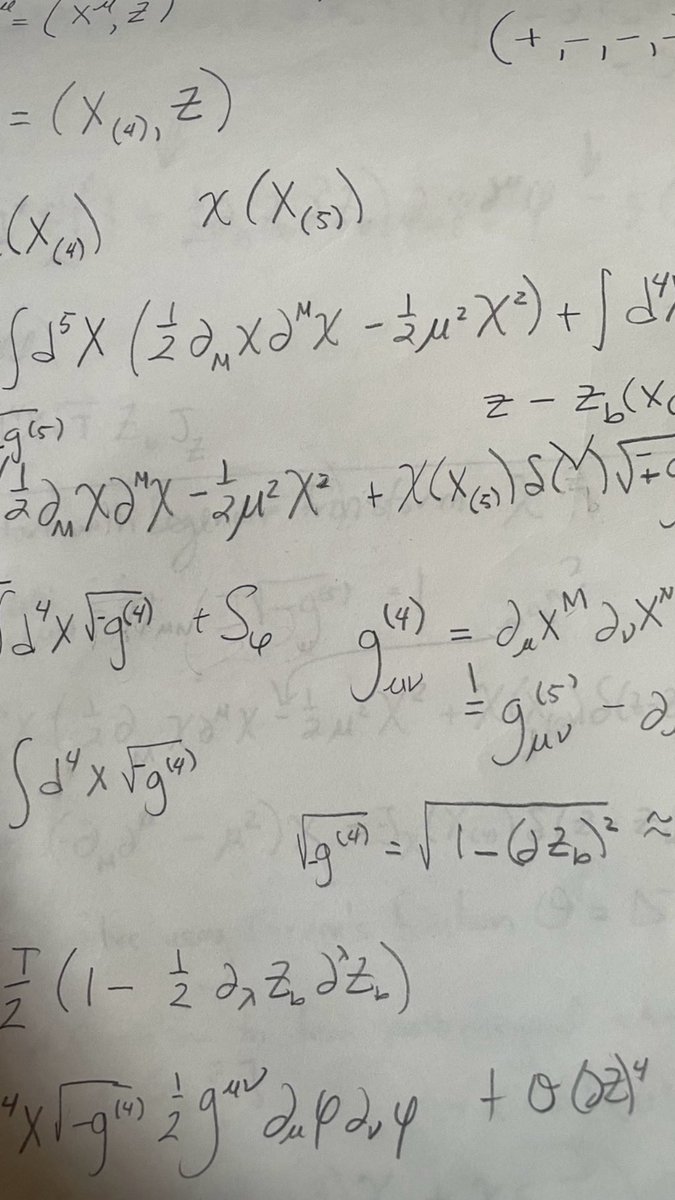 = (X^μ, Z)
(+,-,-,-
= (X_(4), Z)
(X_(4))
χ(X_(5))
∫d⁵X (½ ∂_M χ ∂^M χ - ½ μ² χ²) + ∫ d⁴
z - z_b(X
g^(5)
½ ∂_M χ ∂^M χ - ½ μ² χ² + χ(X_(5)) δ( ) √-g
∫d⁴x √-g^(4) + S_φ
g^(4)_μν = ∂_μ X^M ∂_ν X^N
= g^(5)_μν - ∂
∫d⁴x √-g^(4)
√-g^(4) = √1-(∂Z_b)² ≈
T/2 (1 - ½ ∂_λ Z_b ∂^λ Z_b)
⁴x √-g^(4) ½ g^μν ∂_μ φ ∂_ν φ + O(∂Z)⁴